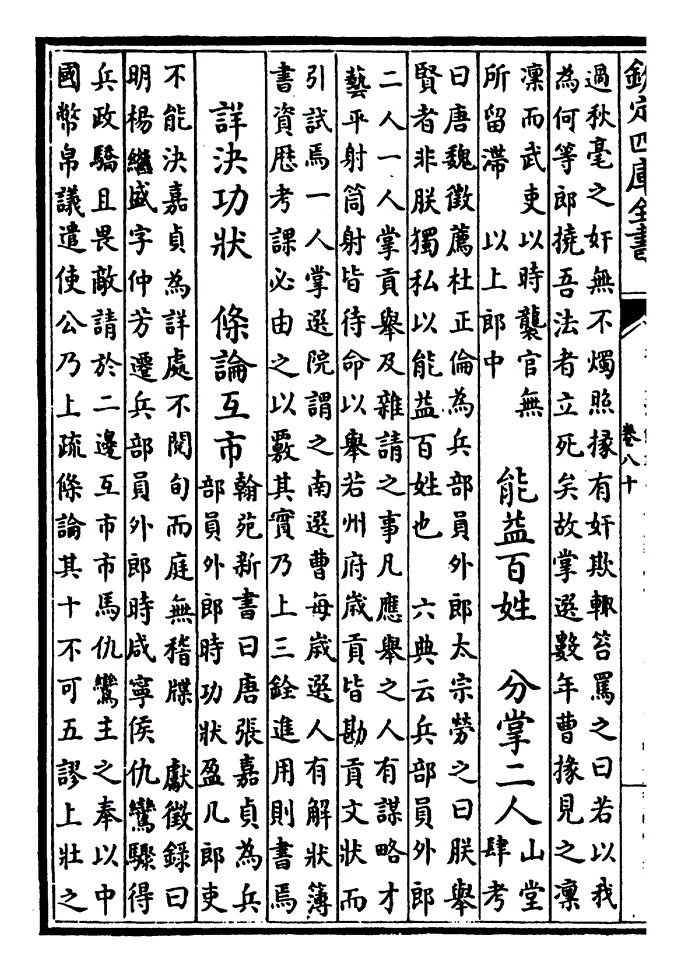 欽定四庫全書
卷八十
過秋毫之奸無不燭照掾有奸欺輒笞罵之曰若以我
為何等郎撓吾法者立死矣故掌選數年曹掾見之凜
凜而武吏以時襲官無
所留滯　以上郎中
能益百姓　分掌二人
山堂
肆考
曰唐魏徵薦杜正倫為兵部員外郎太宗勞之曰朕舉
賢者非朕獨私以能益百姓也　六典云兵部員外郎
二人一人掌貢舉及雜請之事凡應舉之人有謀略才
藝平射筒射皆待命以舉若州府歲貢皆勘貢文狀而
引試焉一人掌選院謂之南選曹每歲選人有解狀簿
書資歷考課必由之以覈其實乃上三銓進用則書焉
詳決功狀　條論互市
翰苑新書曰唐張嘉貞為兵
部員外郎時功狀盈几郎吏
不能決嘉貞為詳處不閱旬而庭無稽牒　獻徵錄曰
明楊繼盛字仲芳遷兵部員外郎時咸寧侯仇鸞驟得
兵政驕且畏敵請於二邊互市市馬仇鸞主之奉以中
國幣帛議遣使公乃上疏條論其十不可五謬上壯之